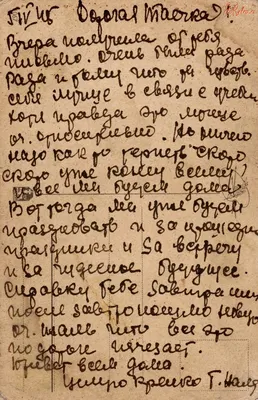 5/IV 45 Дорогая Таечка!
Вчера получила от тебя
письмо. Очень была рада
Рада и тому что ты чувств.
себя лучше в связи с
хотя правда это лучше
оч. относительно. Но ничего
надо как то терпеть скоро
скоро уже конец войне
и все мы будем дома.
Вот тогда мы уже будем
праздновать и за прошедшие
праздники и за встречу
и за чудесное будущее.
Справку тебе завтра или
после завтра
оч. жаль что все это
по дороге исчезает.
Привет всем дома.
Целую крепко Т.